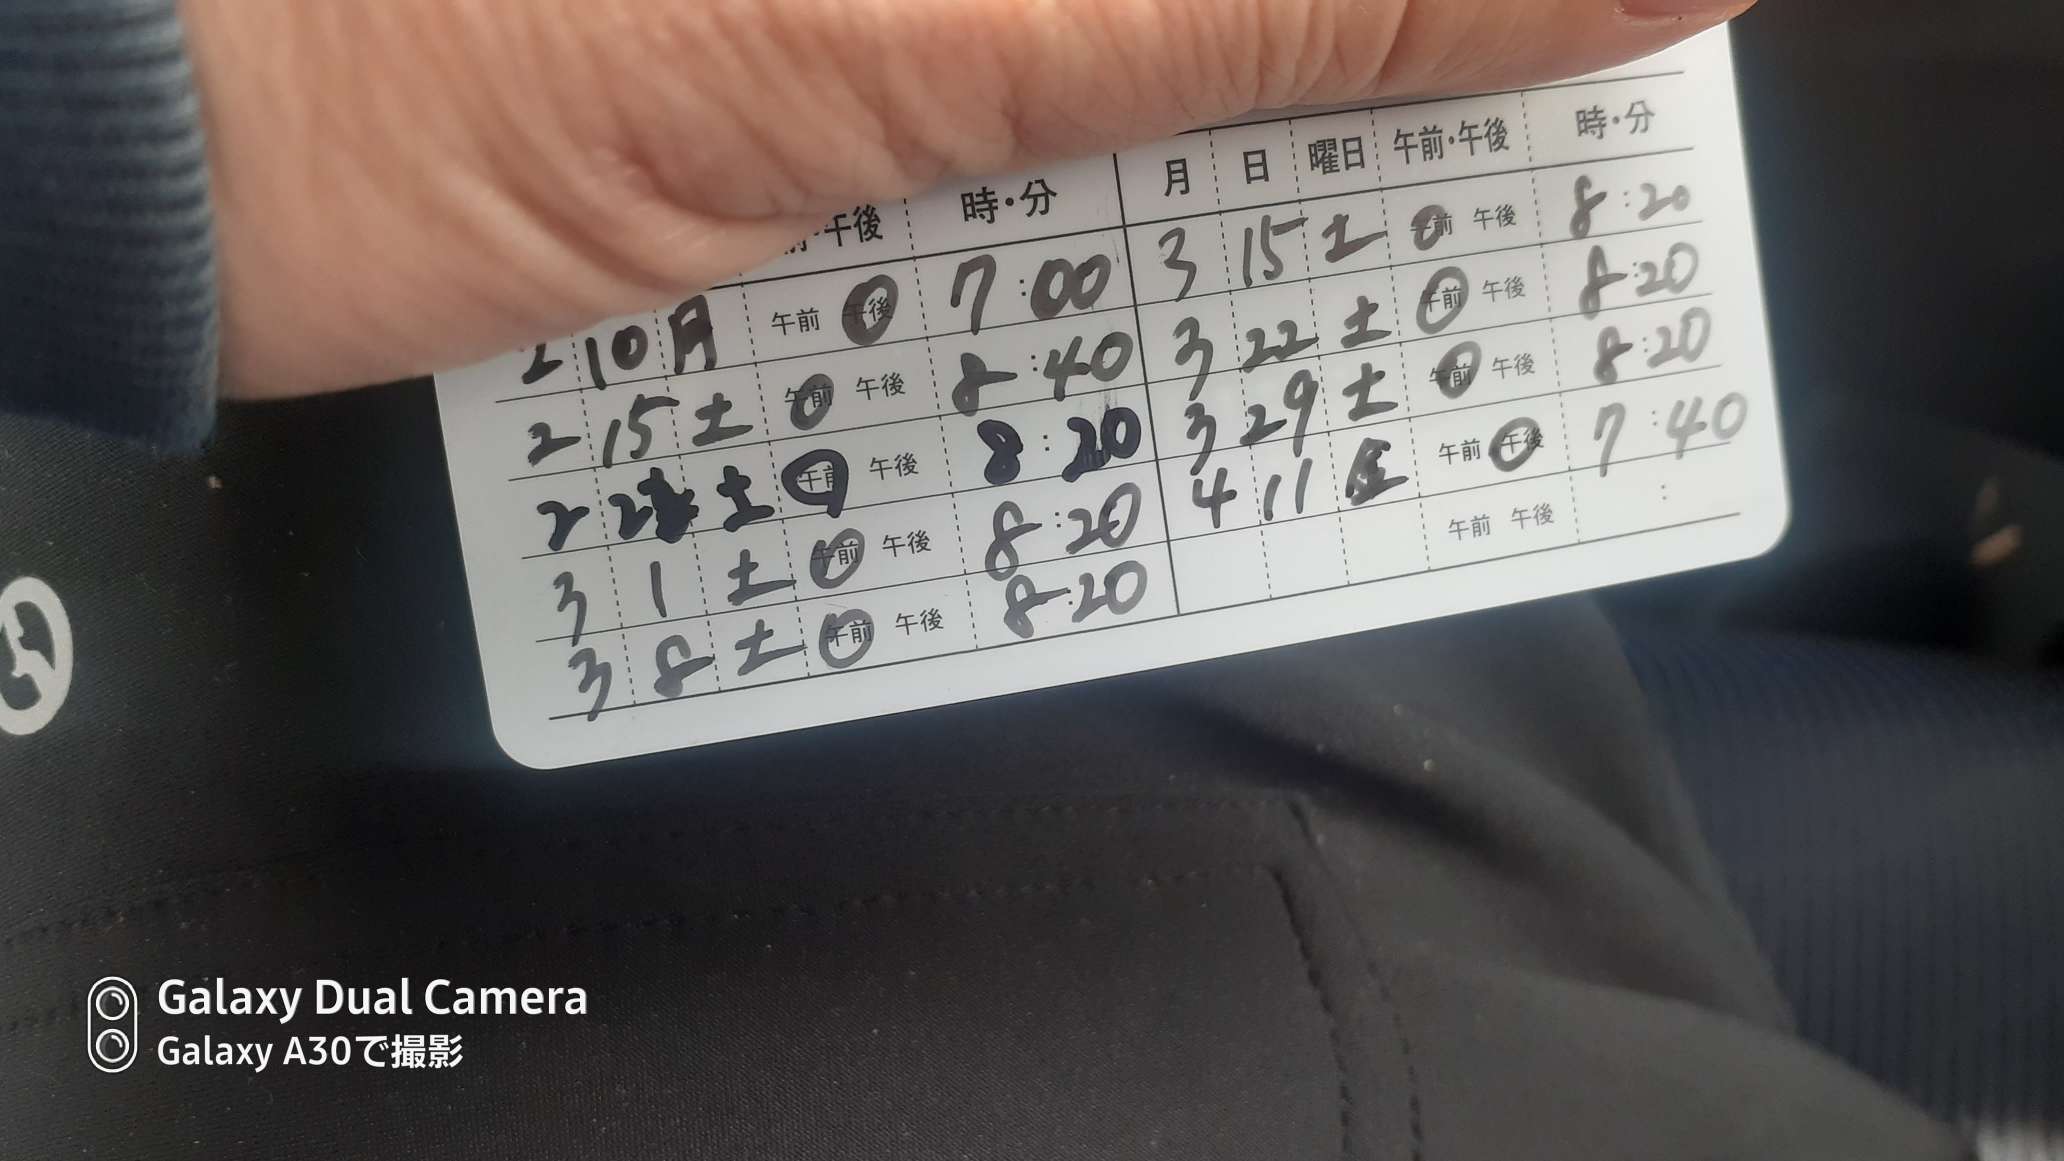 前・午後 時・分
2 10 月 午前 午後 7:00
2 15 土 午前 午後 8:40
2 22 土 午前 午後 8:20
3 1 土 午前 午後 8:20
3 8 土 午前 午後 8:20
月 日 曜日 午前・午後 時・分
3 15 土 午前 午後 8:20
3 22 土 午前 午後 8:20
3 29 土 午前 午後 8:20
4 11 金 午前 午後 7:40
午前 午後 :
Galaxy Dual Camera
Galaxy A30で撮影